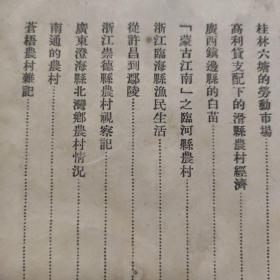 桂林六塘的勞動市場
高利貸支配下的滑縣農村經濟
廣西鎮邊縣的白苗
「蒙古江南」之臨河縣農村
浙江臨海縣漁民生活
從許昌到鄢陵
浙江崇德縣農村視察記
廣東澄海縣北灣鄉農村情況
南通的農村
蒼梧農村雜記